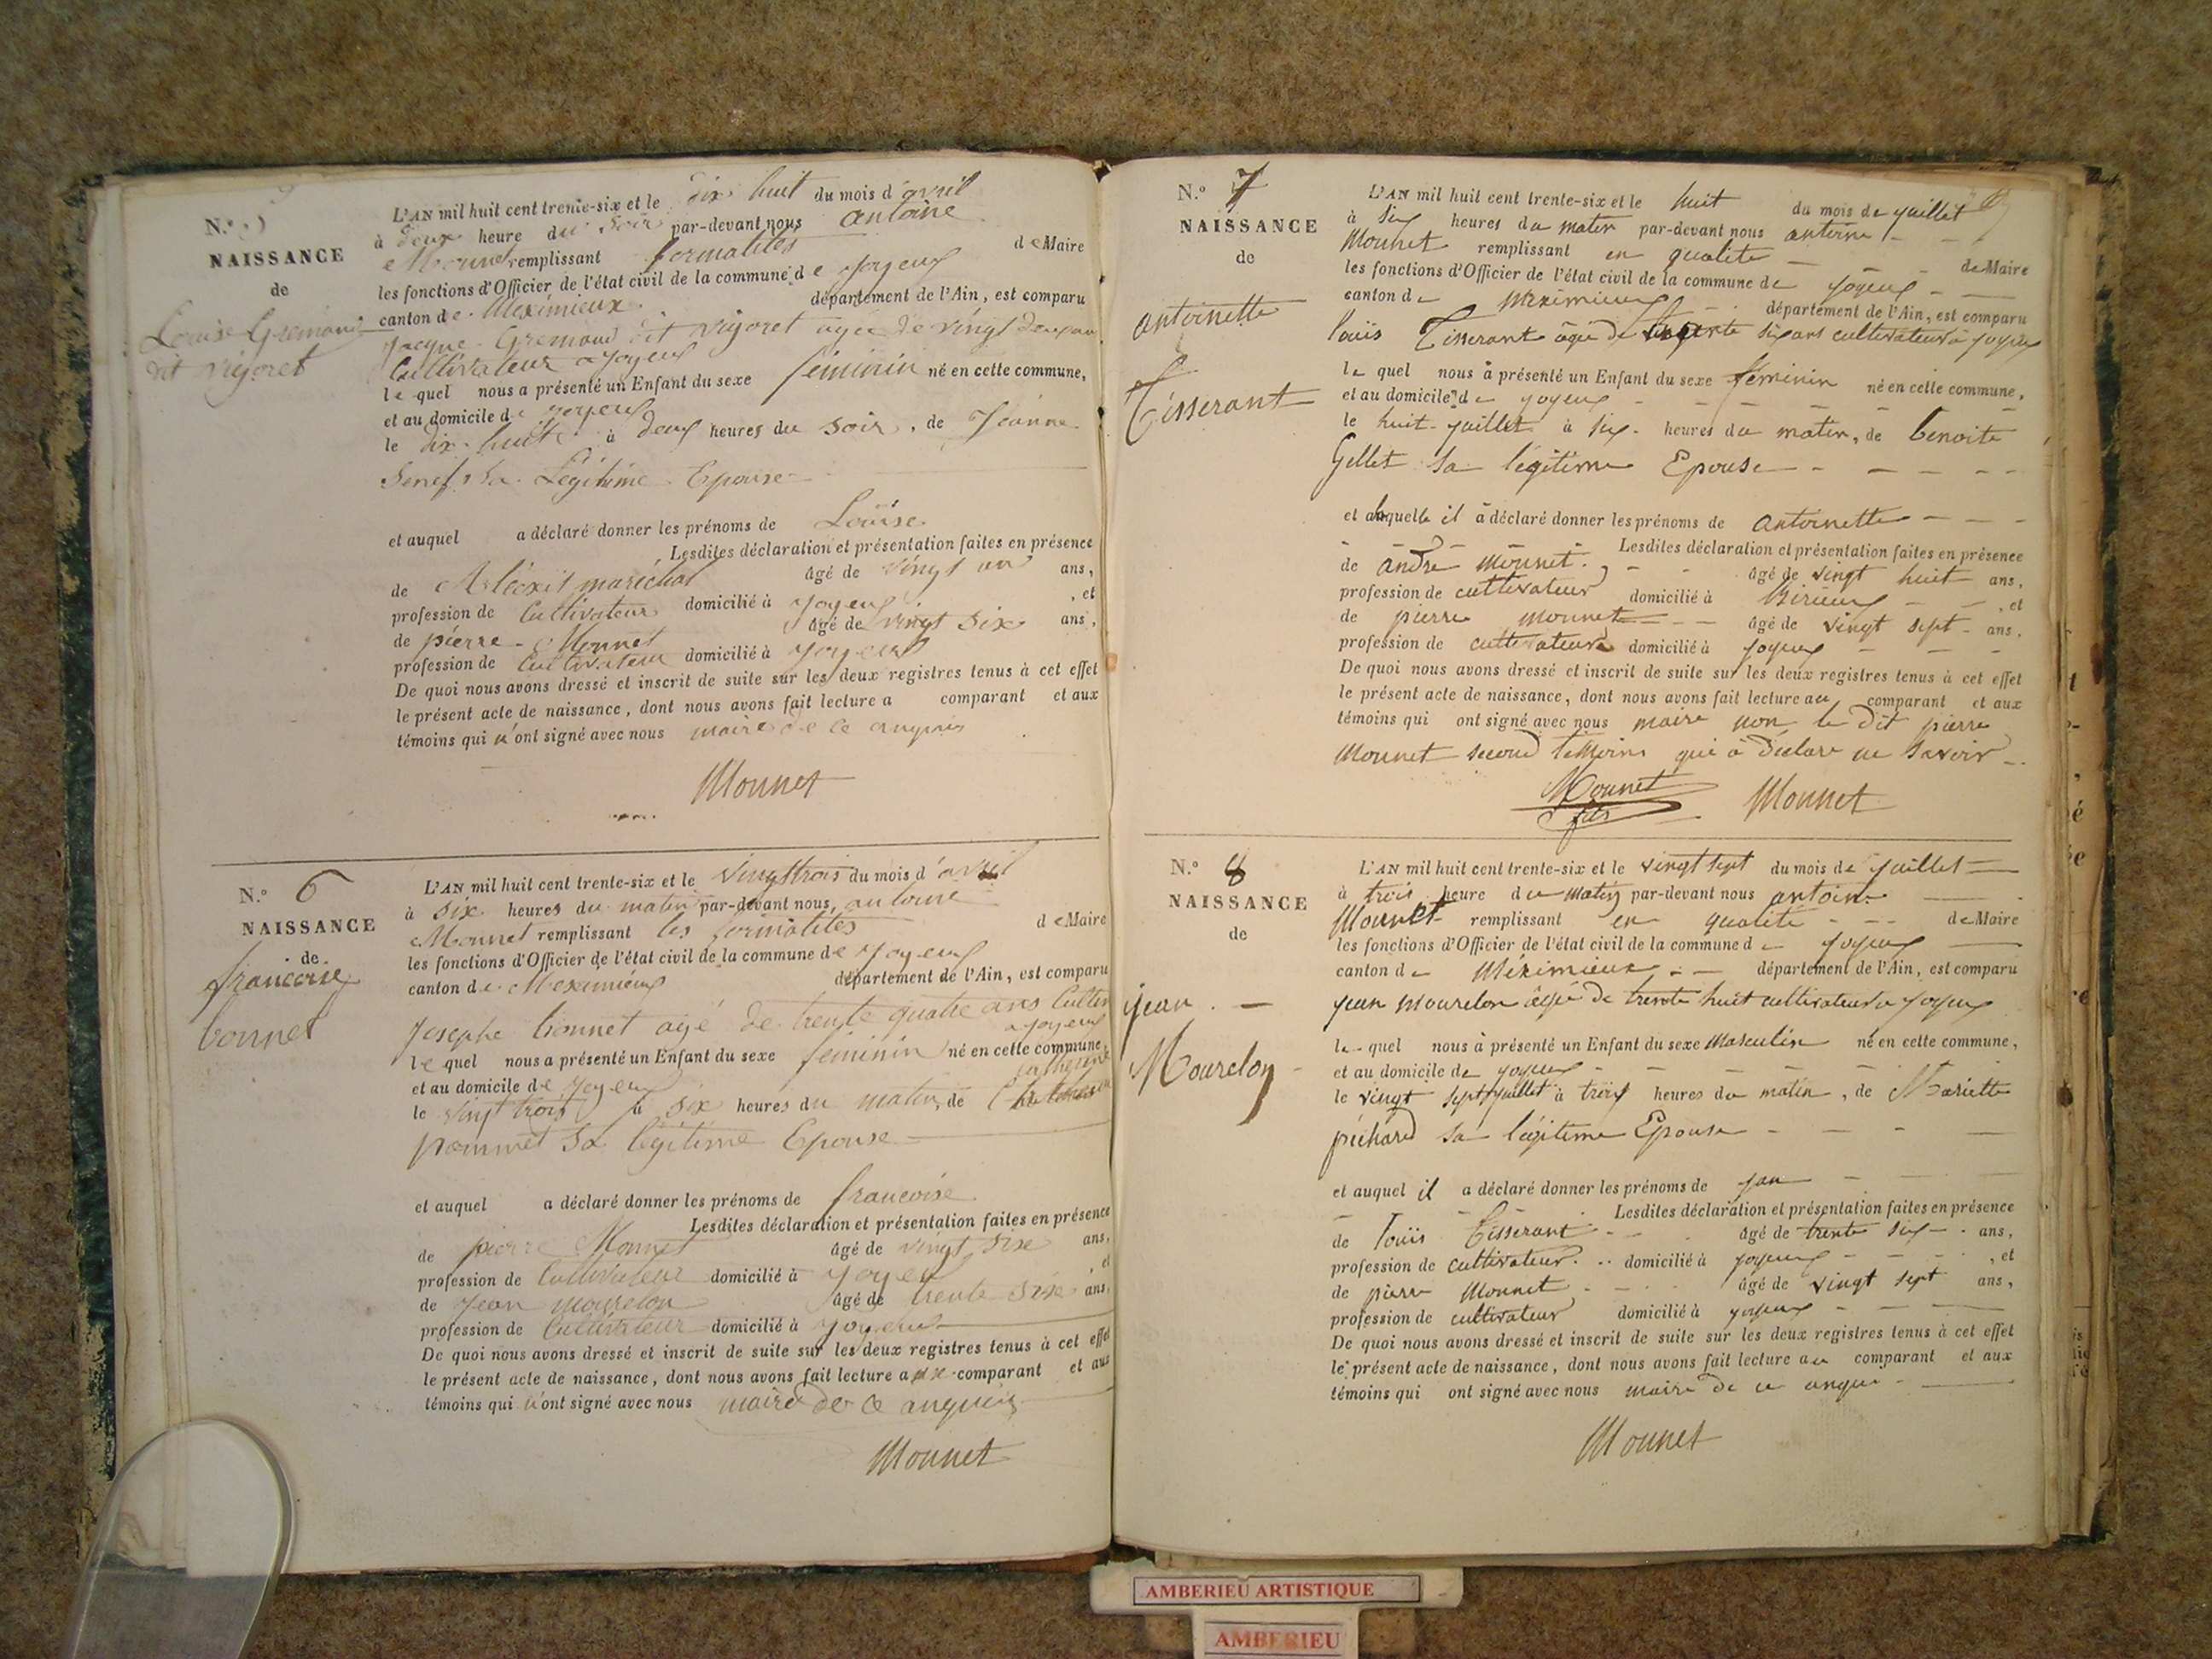 N.º 5
NAISSANCE
de
Louise Gremaud
dit vigoret
L'AN mil huit cent trente-six et le dix huit du mois d'avril
à deux heure du soir par-devant nous antoine
Monnet remplissant formalités de Maire
les fonctions d'Officier de l'état civil de la commune de joyeux
canton de Meximieux département de l'Ain, est comparu
jacque Gremaud dit vigoret agée de vingt deux ans
Cultivateur a joyeux
le quel nous a présenté un Enfant du sexe féminin né en cette commune,
et au domicile de joyeux
le dix huite à deux heures du soir, de Jeanne
sa Légitime Epouse
et auquel a déclaré donner les prénoms de Louise
Lesdites déclaration et présentation faites en présence
de maréchal âgé de vingt un ans,
profession de Cultivateur domicilié à joyeux, et
de pierre Monnet âgé de vingt six ans,
profession de Cultivateur domicilié à joyeux
De quoi nous avons dressé et inscrit de suite sur les deux registres tenus à cet effet
le présent acte de naissance, dont nous avons fait lecture a comparant et aux
témoins qui n'ont signé avec nous maire de ce
Monnet
N.º 6
NAISSANCE
de
francoise
bonnet
L'AN mil huit cent trente-six et le vingttrois du mois d'avril
à six heures du matin par-devant nous, antoine
Monnet remplissant les formalités de Maire
les fonctions d'Officier de l'état civil de la commune de joyeux
canton de Meximieux département de l'Ain, est comparu
Josephe bonnet agé de trente quatre ans Cultiv
a joyeux
le quel nous a présenté un Enfant du sexe féminin né en cette commune,
et au domicile de joyeux catherine
le vingt trois à six heures du matin, de
pommet sa légitime Epouse
et auquel a déclaré donner les prénoms de francoise
Lesdites déclaration et présentation faites en présence
de pierre Monnet âgé de vingt six ans,
profession de Cultivateur domicilié à joyeux, et
de jean mourelon âgé de trente six ans,
profession de Cultivateur domicilié à joyeux
De quoi nous avons dressé et inscrit de suite sur les deux registres tenus à cet effet
le présent acte de naissance, dont nous avons fait lecture aux comparant et aux
témoins qui n'ont signé avec nous maire de ce
Monnet
N.º 7
NAISSANCE
de
antoinette
Tisserant
L'AN mil huit cent trente-six et le huit du mois de juillet
à six heures du matin par-devant nous antoine
Monnet remplissant en qualité de Maire
les fonctions d'Officier de l'état civil de la commune de joyeux
canton de Meximieux département de l'Ain, est comparu
louis Tisserant âgé de trente six ans cultivateur à joyeux
le quel nous à présenté un Enfant du sexe feminin né en cette commune,
et au domicile de joyeux
le huit juillet à six heures du matin, de benoite
Gellet sa légitime Epouse
et alaquelle il à déclaré donner les prénoms de antoinette
Lesdites déclaration et présentation faites en présence
de andré monnet. âgé de vingt huit ans,
profession de cultivateur domicilié à birieux, et
de pierre monnet âgé de vingt sept ans,
profession de cultivateur domicilié à joyeux
De quoi nous avons dressé et inscrit de suite sur les deux registres tenus à cet effet
le présent acte de naissance, dont nous avons fait lecture au comparant et aux
témoins qui ont signé avec nous maire non le dit pierre
Monnet second témoins qui à déclare ne savoir
Monnet fils Monnet
N.º 8
NAISSANCE
de
jean
Mourelon
L'AN mil huit cent trente-six et le vingt sept du mois de juillet
à trois heure du matin par-devant nous antoine
Monnet remplissant en qualité de Maire
les fonctions d'Officier de l'état civil de la commune de joyeux
canton de Méximieux département de l'Ain, est comparu
jean mourelon âgé de trente huit cultivateur a joyeux
le quel nous à présenté un Enfant du sexe masculin né en cette commune,
et au domicile de joyeux
le vingt sept juillet à trois heures du matin, de Mariette
pichard sa légitime Epouse
et auquel il a déclaré donner les prénoms de jan
Lesdites déclaration et présentation faites en présence
de louis Tisserant âgé de trente six ans,
profession de cultivateur domicilié à joyeux, et
de pierre Monnet âgé de vingt sept ans,
profession de cultivateur domicilié à joyeux
De quoi nous avons dressé et inscrit de suite sur les deux registres tenus à cet effet
le présent acte de naissance, dont nous avons fait lecture au comparant et aux
témoins qui ont signé avec nous maire de ce
Monnet
AMBERIEU ARTISTIQUE
AMBERIEU